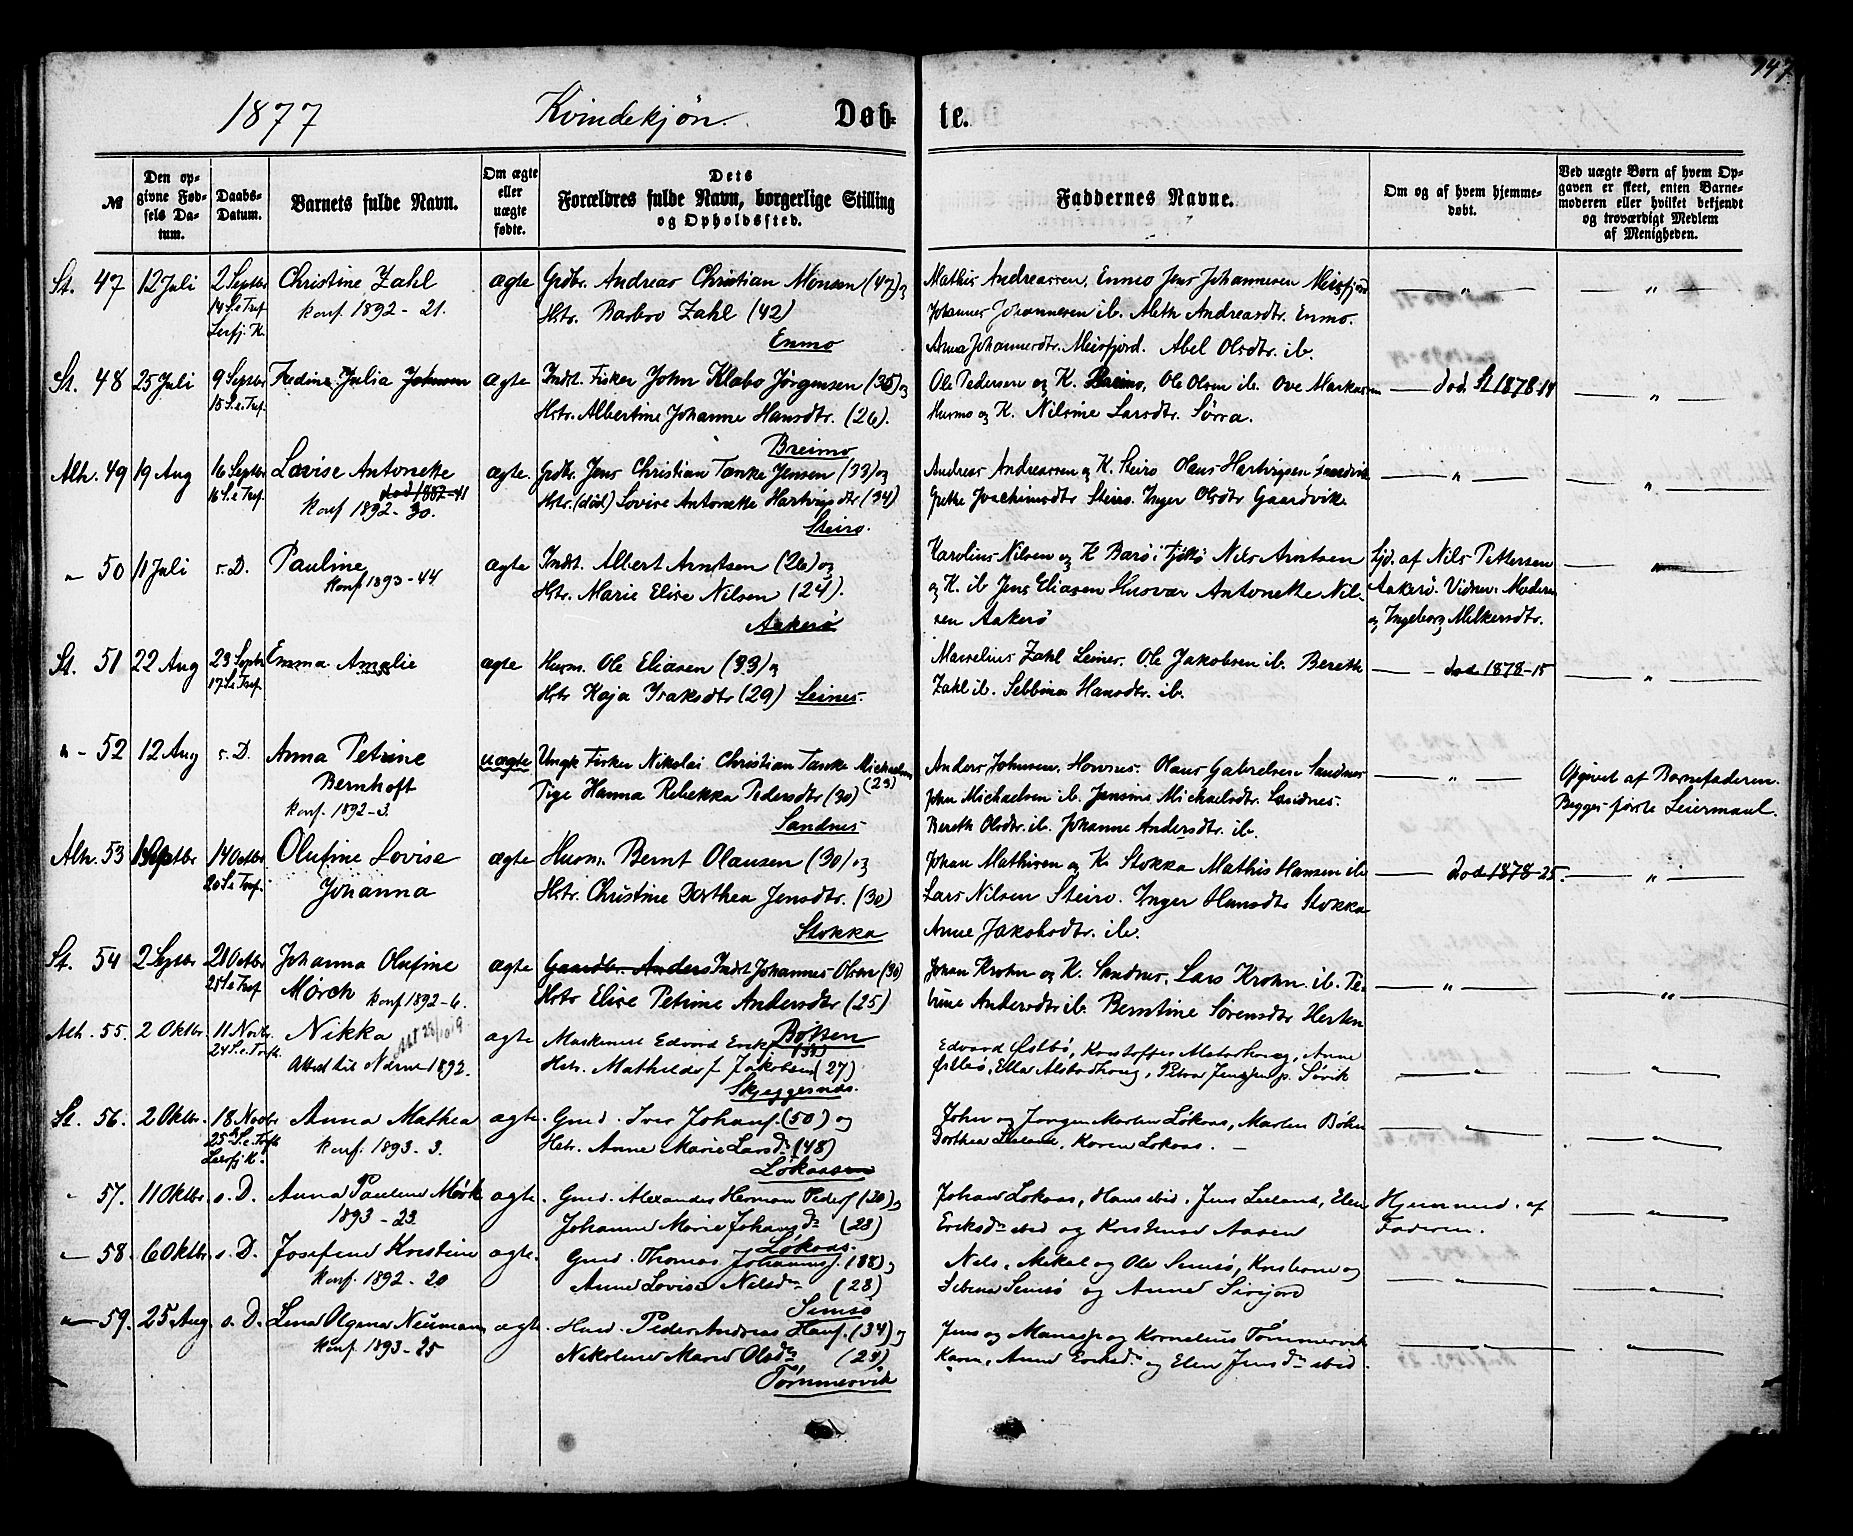 147.
1877 Kvindekjøn. Døb- te.
№
Den op-
givne Fød-
sels Da-
tum.
Daabs-
Datum.
Barnets fulde Navn.
Om ægte
eller
uægte
fødte.
Dets
Forældres fulde Navn, borgerlige Stilling
og Opholdssted.
Faddernes Navne.
Om og af hvem hjemme-
døbt.
Ved uægte Børn af hvem Op-
gaven er skeet, enten Barne-
moderen eller hvilket bekjendt
og troværdigt Medlem
af Menigheden.
St. 47 12 Juli 2 Septbr Christine Zahl ægte Grdbr. Andreas Christian Monsen (47) og Mathis Andreassen, Enmo Jens Johannesen Meisfjord — „ — — „ —
14 S. e Tref. Konf. 1892 - 21. Hstr. Barbro Zahl (42) Johannes Johannesen ib. Aleth Andreasdtr. Enmo.
Leirfj. K. Enmo Anna Johannesdtr. Meisfjord. Abel Olsdtr. ib.
St. 48 25 Juli 9 Septbr Fredine Julia Johnsen ægte Indt. Fisker John Klabo Jörgensen (35) og Ole Pedersen og K. Breimo, Ole Olsen ib. Ove Markussen — død St 1878-14 — „ —
15 S. e Tref. Hstr. Albertine Johanne Hansdtr. (26). Husmo og K. Nilsine Larsdtr. Sörra.
Breimo
Alh. 49 19 Aug 16 Septbr Lovise Antonette ægte. Grdbr. Jens Christian Tanke Jensen (33) og Andreas Andreassen og K. Steiro Olaus Hartvigsen — „ — — „ —
16 S. e Tref. død 1887-41 Hstr. (død) Lovise Antonette Hartvigsdtr (34) Grethe Joachimsdtr Steiro. Inger Olsdtr Gaardvik.
Konf 1892 - 30. Steiro.
„ - 50 11 Juli s. D. Pauline ægte Indt. Albert Arntsen (26) og Karolius Nilsen og K Barö i Tjöttö Nils Arntsen Hjd. af Nils Pettersen — „ —
Konf 1893 - 44 Hstr. Marie Elise Nilsen (24). og K. ib Jens Eliasen Husvær Antonette Nil- Aakerö. Vidner. Moderen
Aakerö sen Aakerö og Ingeborg Melkersdtr.
St. 51 22 Aug 23 Septbr Emma Amalie ægte Husm. Ole Eliasen (33) og Marselius Zahl Leines. Ole Jakobsen ib. Bereth — død 1878-15 — „ —
17 S. e Tref. Hstr Kaja Isaksdtr (29) Leines. Zahl ib. Sebbina Hansdtr. ib.
„ - 52 12 Aug s. D. Anna Petrine uægte Ungk Fisker Nikolai Christian Tanke Michaelsen Anders Johnsen. Hovnes. Olaus Gabrielsen Sandnes — „ — Opgivet af Barnefaderen.
Bernhoft Pige Hanna Rebekka Pedersdtr (30) (23) John Michaelsen ib. Jensine Michaelsdtr. Sandnes. Begges første Leiermaal.
Konf. 1892-3. Sandnes Bereth Olsdtr. ib. Johanne Andersdtr. ib.
Alh. 53 Septbr 14 Octbr Olufine Lovise ægte Husm. Bernt Olausen (30) og Johan Mathisen og K. Stokka Mathis Hansen ib — død 1878-25. — „ —
20 S. e Tref. Johanna Hstr. Christine Dorthea Jensdtr. (30) Lars Nilsen Steiro. Inger Hansdtr Stokka
Stokka Anne Jakobsdtr. ib.
St. 54 2 Septbr 21 Octbr Johanna Olufine ægte Gaardbr. Anders Indt. Johannes Olsen (30) Johan Krohn og K. Sandnes, Lars Krohn ib. Pe- — „ — — „ —
21 S. e Tref. Mörch Konf 1892-6. Hstr Elise Petrine Andersdtr (25) trine Andersdtr ib. Berntine Sörensdtr Herten
Alh. 55. 2 Oktbr. 11 Novbr. Nikka ægte Maskinist Edvard Eriks. Botten (38) Edvard Østbö, Kristoffer Alstadhaug, Anne — „ — — „ —
24 S. e. Trft. Attest til Næsne 1892. Hstr. Mathilde Jakobsen (27) Østbö, Ellen Alstadhaug, Petra Jensen p. Sövik
Skjeggesnæs.
St. 56. 2 Oktbr. 18 Novbr Anna Mathea ægte. Gmd. Iver Johans. (50) og John og Jörgen Marten Løkaas, Marten Böhn — „ — — „ —
25 S. e. Trft. Konf. 1893. 3. Hstr. Anne Marie Larsdr. (48) Dorthea Leland, Karen Løkaas. —
Leirfj. K. Løkaasen
„ 57. 11 Oktbr. s. D. Anna Pauline Mørk ægte. Gmd. Alexander Herman Peders (30) og Johan Løkaas, Hans ibid. Jens Leland, Elen Hjemmed. af — „ —
1893 - 23. Johanne Marie Johansdr (28) Eriksdr ibid og Kristense Aasen Faderen.
Løkaas.
„ 58. 6 Oktbr. s. D. Josefine Kristine ægte. Gmd. Thomas Johannes. (38) og Nels, Mikal og Ole Semsö, Kristiane og — „ — — „ —
Konf. 1892 - 20 Anne Lovise Nilsdr (28) Sibina Semsö og Anne Sivijord
Semsö
„ 59. 25 Aug. s. D. Lina Olgena Neumann ægte. Husd. Peder Andreas Hans. (34) og Jens og Manasse og Kornelius Tömmervik — „ — — „ —
Konf. 1893 - 25 Nikoline Marie Olsdr (23) Karen, Anne Eriksdr. og Elen Jensdr ibid.
Tömmervik